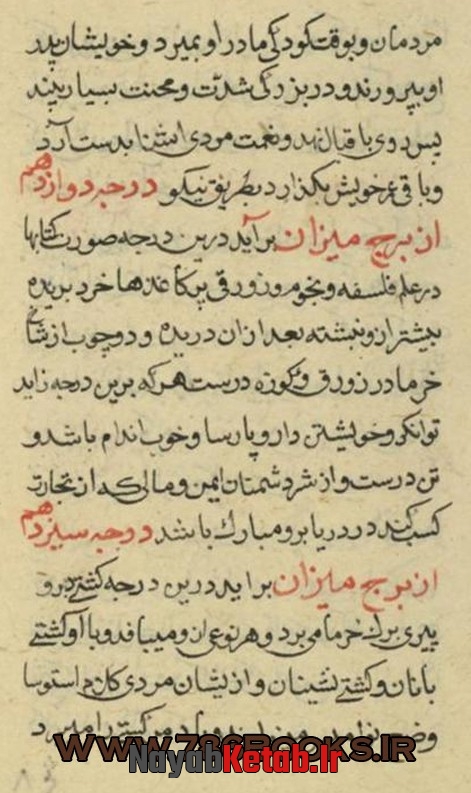 مردمان و بوقت کودکی مادر او بمیرد و خویشان پدر
او بپرورند و در بزرگی شدت و محنت بسیار بیند
پس روی باقبال نهد و نعمت مردی اشنا بدست آرد
و باقی عمر خویش بگذارد بطریق نیکو درجه دوازدهم
از برج میزان برآید درین درجه صورت کتابها
در علم فلسفه و نجوم و زورقی پر کاغذها خرد بریده
بیشتر از و نبشته بعد ازان دریده و دو چوب از شاخ
خرما در زورق و کوزه درست هرکه برین درجه زاید
توانکر و خویشتن دار و پارسا و خوب اندام باشد و
تن درست و از شر دشمنان ایمن و مالی که از تجارت
کسب کند در دریا برو مبارک باشد درجه سیزدهم
از برج میزان براید درین درجه کشتی درو
پیری برک خرما می برد و هر نوعی ازو میبافد و با او کشتی
بانان و کشتی نشینان و از یشان مردی
و کشتی را
WWW.786BOOKS.IR
NayabKetab.ir